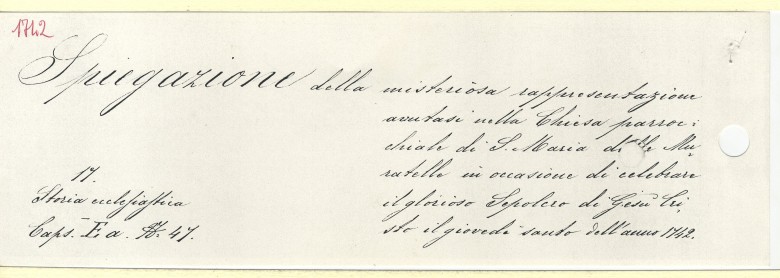 1742
Spiegazione della misteriosa rappresentazione
avutasi nella Chiesa parroc:
chiale di S. Maria delle Mu,
ratelle in occasione di celebrare
il glorioso Sepolcro di Gesù Cri,
sto il giovedì santo dell'anno 1742.
17.
Storia ecclesiastica
Caps. E a. N. 47.